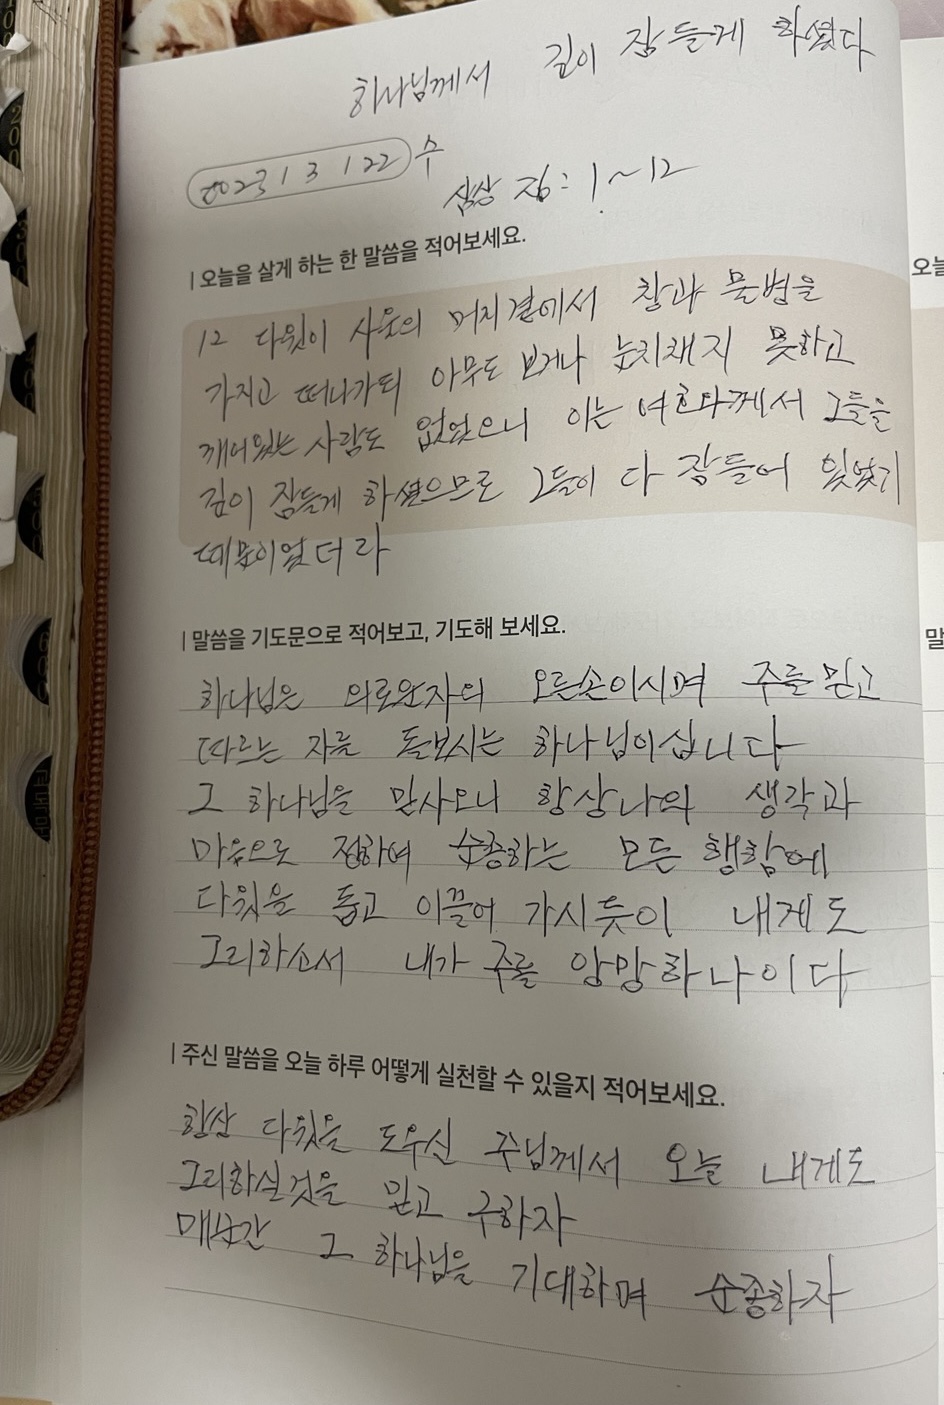 하나님께서 깊이 잠들게 하셨다
2023 / 3 / 22 수
삼상 26: 1~12
| 오늘을 살게 하는 한 말씀을 적어보세요.
12 다윗이 사울의 머리 곁에서 창과 물병을
가지고 떠나가되 아무도 보거나 눈치채지 못하고
깨어있는 사람도 없었으니 이는 여호와께서 그들을
깊이 잠들게 하셨으므로 그들이 다 잠들어 있었기
때문이었더라
| 말씀을 기도문으로 적어보고, 기도해 보세요.
하나님은 의로운자의 오른손이시며 주를 믿고
따르는 자를 돌보시는 하나님이십니다
그 하나님을 믿사오니 항상 나의 생각과
마음으로 정하여 순종하는 모든 행함에
다윗을 돕고 이끌어 가시듯이 내게도
그리하소서 내가 주를 앙망하나이다
| 주신 말씀을 오늘 하루 어떻게 실천할 수 있을지 적어보세요.
항상 다윗을 도우신 주님께서 오늘 내게도
그리하실것을 믿고 구하자
매순간 그 하나님을 기대하며 순종하자
오늘
말